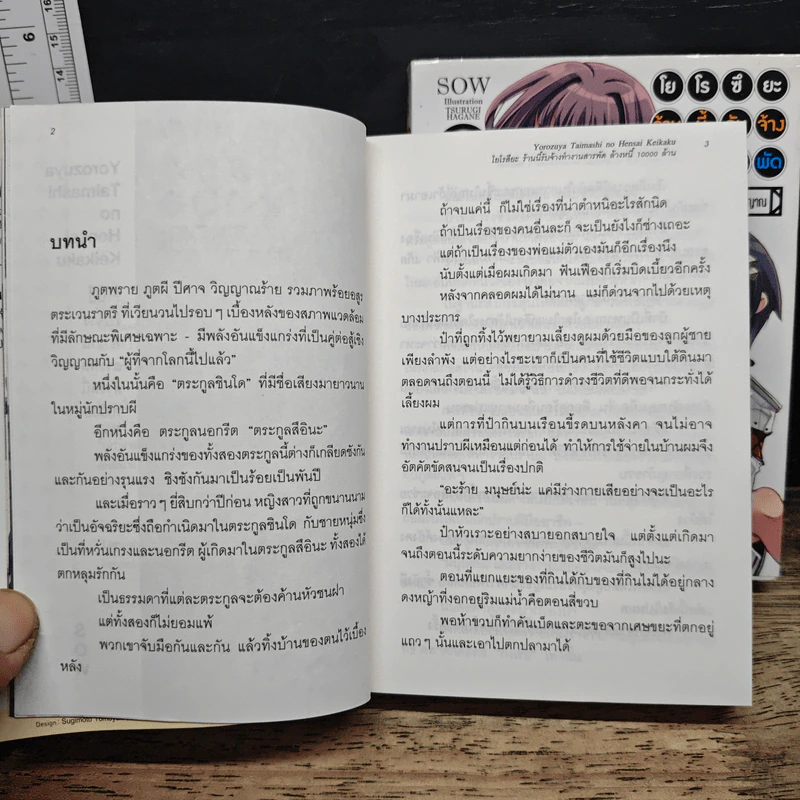 6
16
15
14
SOW
Illustration
TSURUGI
HAGANE
โ ย โ ร ซึ ยะ
จ้าง
พัด
2
Yorozuya
Taimashi
no
Keikaku
บทนำ
ภูตพราย ภูตผี ปีศาจ วิญญาณร้าย รวมภาพร้อยอสูร
ตระเวนราตรี ที่เวียนวนไปรอบๆ เบื้องหลังของสภาพแวดล้อม
ที่มีลักษณะพิเศษเฉพาะ - มีพลังอันแข็งแกร่งที่เป็นคู่ต่อสู้เชิง
วิญญาณกับ “ผู้ที่จากโลกนี้ไปแล้ว”
หนึ่งในนั้นคือ “ตระกูลชินโด” ที่มีชื่อเสียงมายาวนาน
ในหมู่นักปราบผี
อีกหนึ่งคือ ตระกูลนอกรีต “ตระกูลสึอินะ”
พลังอันแข็งแกร่งของทั้งสองตระกูลนี้ต่างก็เกลียดชังกัน
และกันอย่างรุนแรง ชิงชังกันมาเป็นร้อยเป็นพันปี
และเมื่อราวๆ ยี่สิบกว่าปีก่อน หญิงสาวที่ถูกขนานนาม
ว่าเป็นอัจฉริยะซึ่งถือกำเนิดมาในตระกูลชินโด กับชายหนุ่มซึ่ง
เป็นที่หวั่นเกรงและนอกรีต ผู้เกิดมาในตระกูลสึอินะ ทั้งสองได้
ตกหลุมรักกัน
เป็นธรรมดาที่แต่ละตระกูลจะต้องค้านหัวชนฝา
แต่ทั้งสองก็ไม่ยอมแพ้
พวกเขาจับมือกันและกัน แล้วทิ้งบ้านของตนไว้เบื้อง
หลัง
Yorozuya Taimashi no Hensai Keikaku 3
โยโรซึยะ ร้านนี้รับจ้างทำงานสารพัด ล้างหนี้ 10000 ล้าน
ถ้าจบแค่นี้ ก็ไม่ใช่เรื่องที่น่าตำหนิอะไรสักนิด
ถ้าเป็นเรื่องของคนอื่นละก็ จะเป็นยังไงก็ช่างเถอะ
แต่ถ้าเป็นเรื่องของพ่อแม่ตัวเองมันก็อีกเรื่องนึง
นับตั้งแต่เมื่อผมเกิดมา ฟันเฟืองก็เริ่มบิดเบี้ยวอีกครั้ง
หลังจากคลอดผมได้ไม่นาน แม่ก็ด่วนจากไปด้วยเหตุ
บางประการ
ป๋าที่ถูกทิ้งไว้พยายามเลี้ยงดูผมด้วยมือของลูกผู้ชาย
เพียงลำพัง แต่อย่างไรซะเขาก็เป็นคนที่ใช้ชีวิตแบบใต้ดินมา
ตลอดจนถึงตอนนี้ ไม่ได้รู้วิธีการดำรงชีวิตที่ดีพอจนกระทั่งได้
เลี้ยงผม
แต่การที่ป๋ากินบนเรือนขี้รดบนหลังคา จนไม่อาจ
ทำงานปราบผีเหมือนแต่ก่อนได้ ทำให้การใช้จ่ายในบ้านผมจึง
อัตคัตขัดสนจนเป็นเรื่องปกติ
“อะร้าย มนุษย์น่ะ แค่มีร่างกายเสียอย่างจะเป็นอะไร
ก็ได้ทั้งนั้นแหละ”
ป๋าหัวเราะอย่างสบายอกสบายใจ แต่ตั้งแต่เกิดมา
จนถึงตอนนี้ระดับความยากง่ายของชีวิตมันก็สูงไปนะ
ตอนที่แยกแยะของที่กินได้กับของที่กินไม่ได้อยู่กลาง
ดงหญ้าที่งอกอยู่ริมแม่น้ำคือตอนสี่ขวบ
พอห้าขวบก็ทำคันเบ็ดและตะขอจากเศษขยะที่ตกอยู่
แถวๆ นั้นและเอาไปตกปลามาได้
Design: Sugimoto